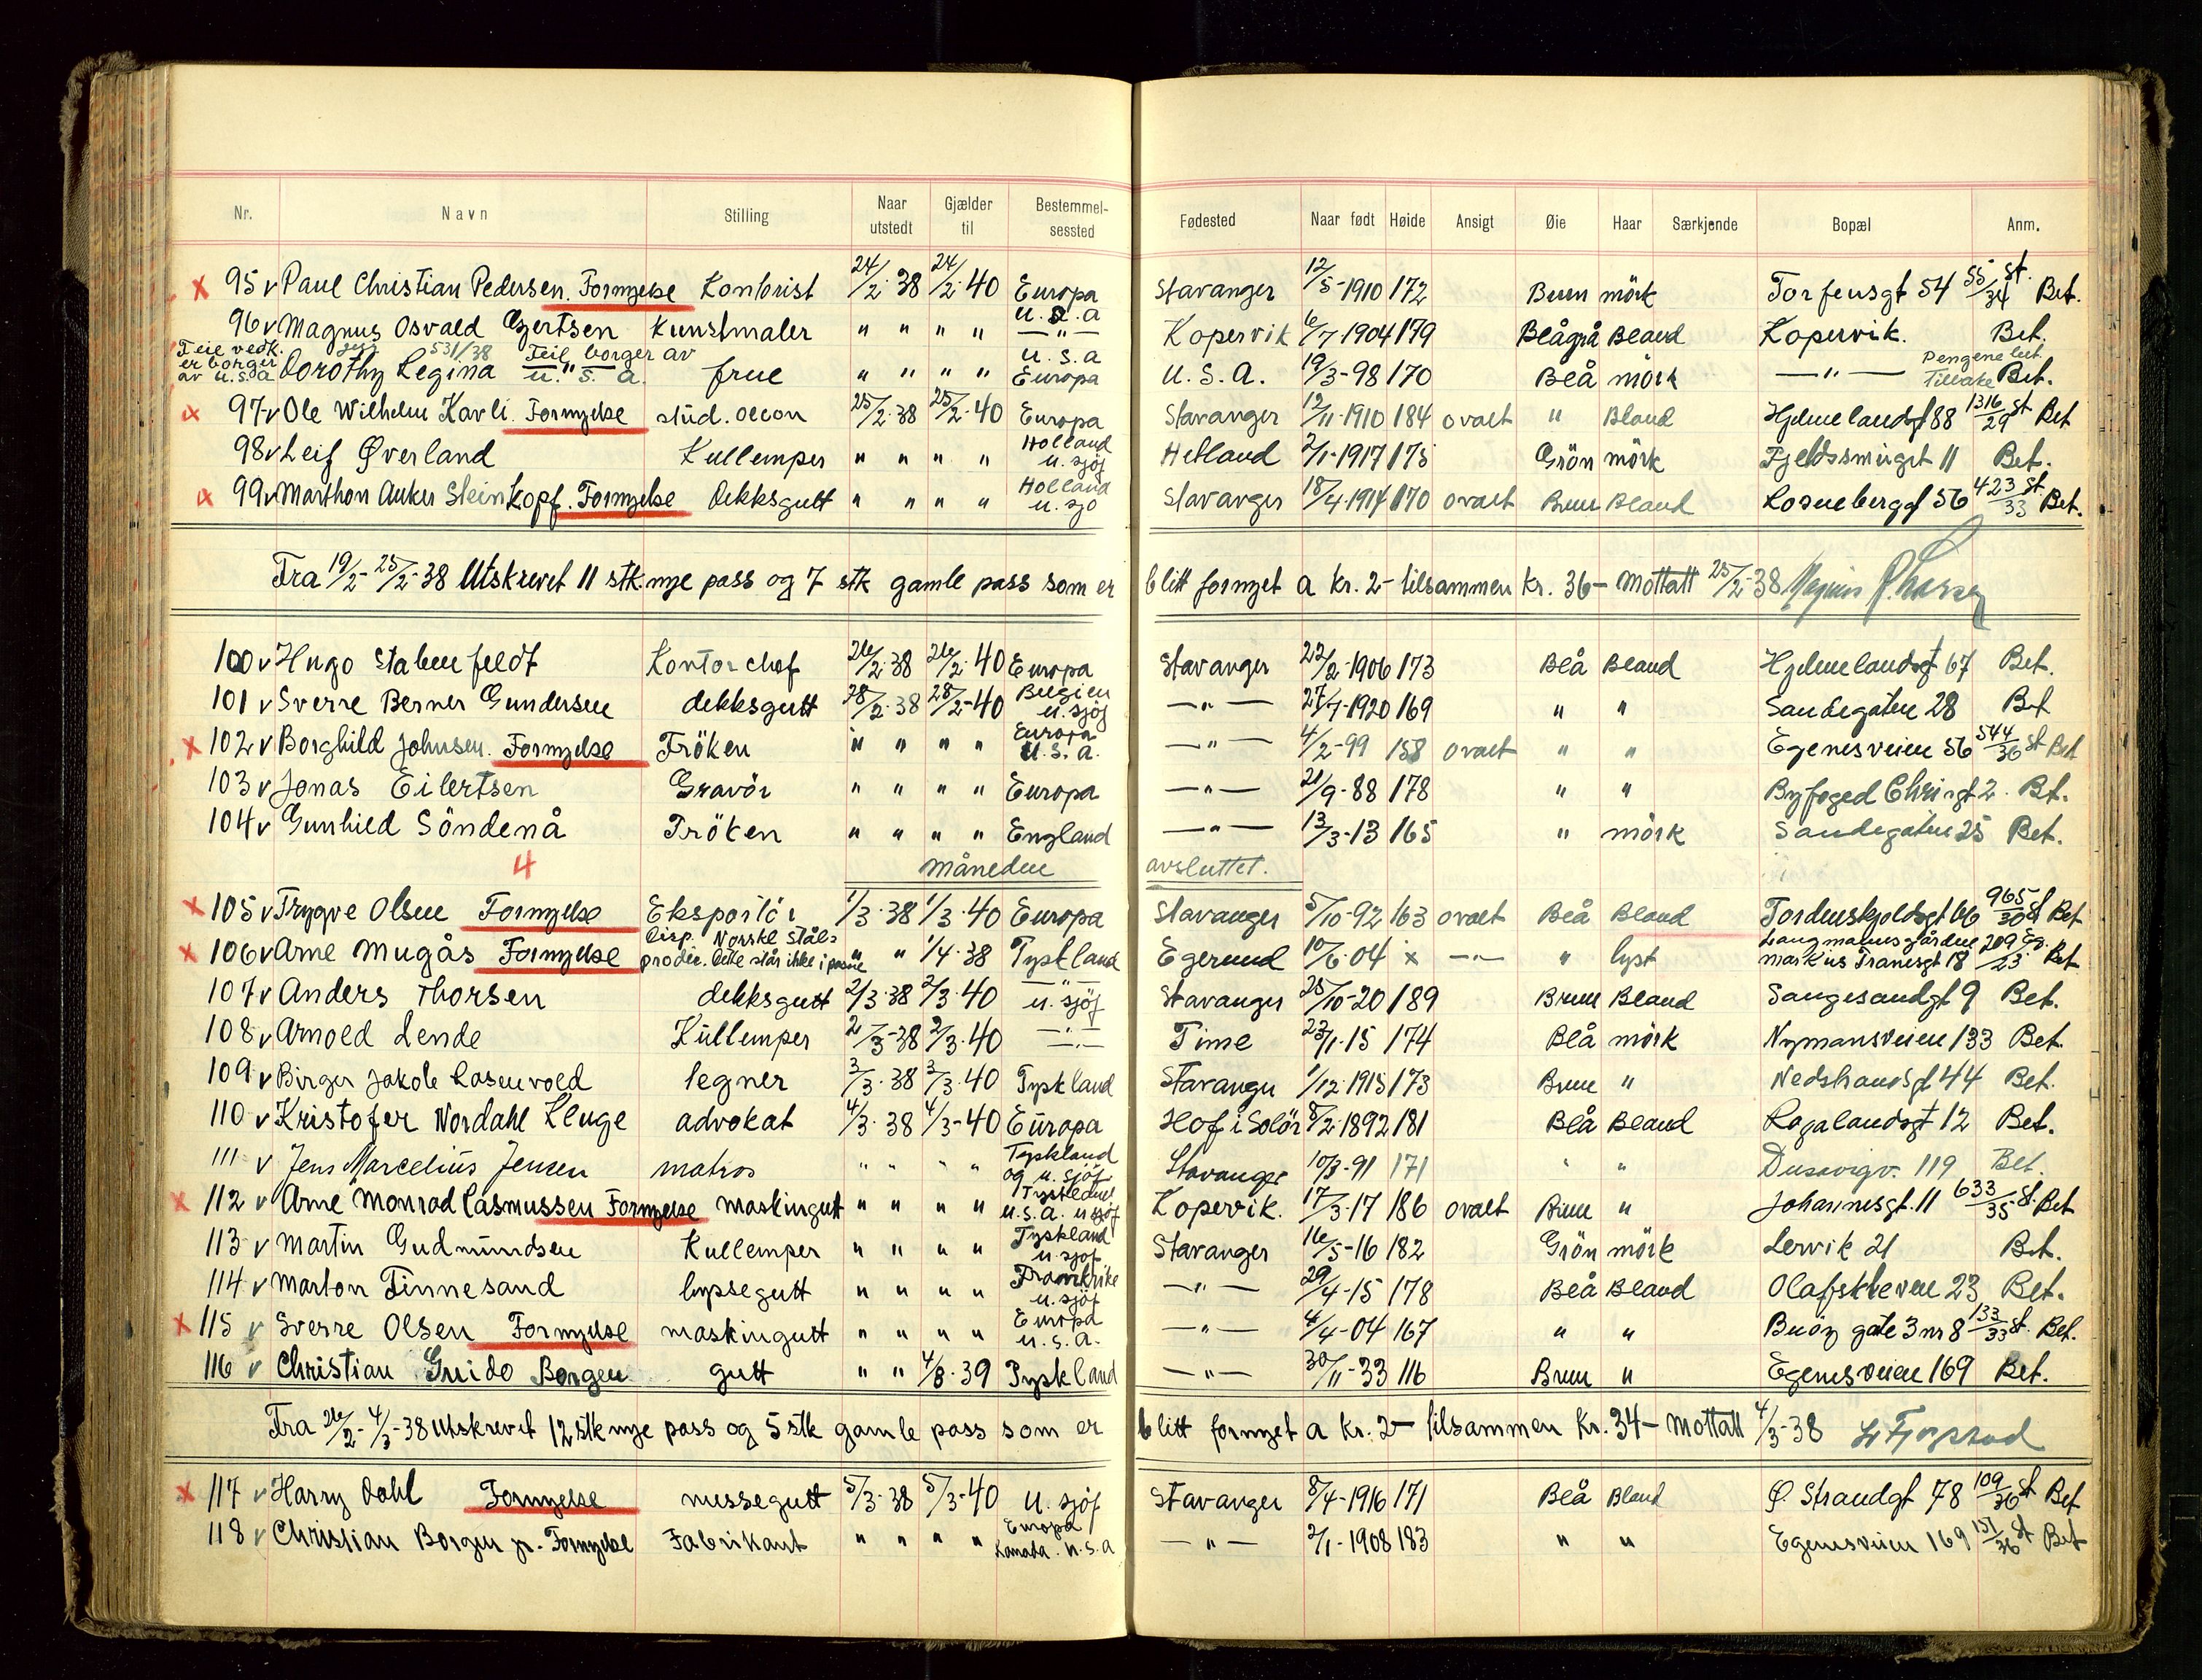 Nr. Navn Stilling Naar utstedt Gjælder til Bestemmelsessted Fødested Naar født Høide Ansigt Øie Haar Særkjende Bopæl Anm.
x 95 v Paul Christian Pedersen. Fornyelse Kontorist 24/2-38 24/2-40 Europa U.S.a Stavanger 12/5-1910 172 Brun mörk Torfeusgt 54 55/34 St. Bet.
96 v Magnus Osvald Gjertsen Kunstmaler " " " " — " — Kopervik 6/7-1904 179 Blågrå Bland Kopervik. Bet.
Feil vedk. er borger av U.S.A Dorothy Regina 531/38 Feil, borger av U.S.A. frue " " " " U.S.a Europa U.S.A. 19/3-98 170 Blå mörk — " — Pengene bet. Tilbake Bet.
x 97 v Ole Wilhelm Kavli. Fornyelse stud. oecon 25/2-38 25/2-40 Europa Stavanger 12/11-1910 184 ovalt " Bland Hjelmelandsgt 88 1316/29 St Bet
98 v Leif Øverland Kullemper " " " " Holland u. sjöf Hetland 2/1-1917 175 Grön mörk Fjeldssmuget 11 Bet.
x 99 v Marthon Anker Steinkopf. Fornyelse dekksgutt " " " " Holland u. sjö Stavanger 18/4-1914 170 ovalt Brun Bland Rosenberggt 56 423/33 St. Bet.
Fra 19/2-25/2-38 Utskrevet 11 stk. nye pass og 7 stk gamle pass som er blitt fornyet a kr. 2- tilsammen kr. 36- Mottatt 25/2-38 Magnus Larsen
100 v Hugo Stabenfeldt Kontorchef 26/2-38 26/2-40 Europa Stavanger 22/2-1906 173 Blå Bland Hjelmelandsgt 67 Bet.
101 v Sverre Berner Gundersen dekksgutt 28/2-38 28/2-40 Belgien u. sjöf — " — 27/7-1920 169 " " Sandegaten 28 Bet
x 102 v Borghild Johnsen. Fornyelse Fröken " " " " Europa U.S.a. — " — 4/2-99 158 ovalt " " Egenesveien 56 544/36 St Bet
103 v Jonas Eilertsen Gravör " " " " Europa — " — 21/9-88 178 " " Byfoged Chrisgt 2. Bet.
104 v Gunhild Söndenå Fröken " " " " England — " — 13/3-13 165 " mörk Sandegaten 25 Bet.
4 Måneden avsluttet.
x 105 v Trygve Olsen Fornyelse Eksportör 1/3-38 1/3-40 Europa Stavanger 5/10-92 163 ovalt Blå Bland Tordenskjoldsgt 66 965/30 St Bet
x 106 v Arne Mugås Fornyelse disp. Norske Stål- prodir. Dette står ikke i passet " " 1/4-38 Tyskland Egersund 10/6-04 x — " — " lyst Langmannsgården Markus Tranesgt 18 209/23 Eg. Bet
107 v Anders Thorsen dekksgutt 2/3-38 2/3-40 — " — u. sjöf Stavanger 25/10-20 189 Brun Bland Saugesandgt 9 Bet.
108 v Arnold Lende Kullemper 2/3-38 2/3-40 — " — Time 23/1-15 174 Blå mörk Nymansveien 133 Bet.
109 v Birger Jakob Rosenvold tegner 3/3-38 3/3-40 Tyskland Stavanger 1/12-1915 173 Brun " Nedstrandsgt 44 Bet.
110 v Kristofer Nordahl Kluge advokat 4/3-38 4/3-40 Europa Hof i Solör 8/2-1892 181 Blå Bland Rogalandsgt 12 Bet.
111 v Jens Marcelius Jensen matros " " " " Tyskland og u. sjöf Stavanger 10/3-91 171 " " Dusavigv. 119 Bet.
x 112 v Arne Monrad Rasmussen Fornyelse maskingutt " " " " Tyskland U.S.a. u sjöf Kopervik. 17/3-17 186 ovalt Brun " Johannesgt. 11 633/35 St. Bet
113 v Martin Gudmundsen Kullemper " " " " Tyskland u. sjöf Stavanger 16/5-16 182 Grön mörk Lervik 21 Bet.
114 v Marton Finnesand byssegutt " " " " Frankrike u. sjöf — " — 29/4-15 178 Blå Bland Olafskleven 23 Bet.
x 115 v Sverre Olsen Fornyelse maskingutt " " " " Europa u.s.a. — " — 4/4-04 167 " " Buöy gate 3 nr 8 133/33 St. Bet.
116 v Christian Guido Borgen gutt " " 4/3-39 Tyskland — " — 30/11-33 116 Brun " Egenesveien 169 Bet.
Fra 26/2-4/3-38 Utskrevet 12 stk nye pass og 5 stk gamle pass som er blitt fornyet a kr. 2- tilsammen kr. 34- Mottatt 4/3-38
x 117 v Harry Dahl Fornyelse messegutt 5/3-38 5/3-40 u. sjöf Stavanger 8/4-1916 171 Blå Bland Ø. Strandgt 78 109/36 St Bet
118 v Christian Borgen jr. Fornyelse Fabrikant " " " " Europa Kanada. U.S.a — " — 2/1-1908 183 " " Egenesveien 169 151/36 St Bet